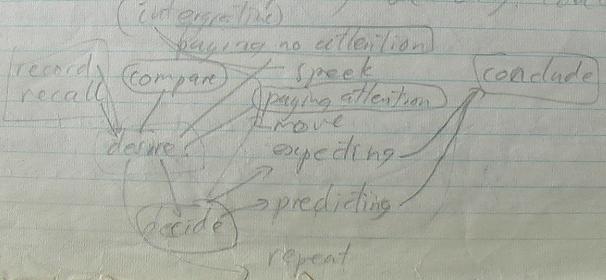 paging no attention
record
recall
compare
speek
conclude
paging attention
move
desire
expecting
decide
predicting
repeat